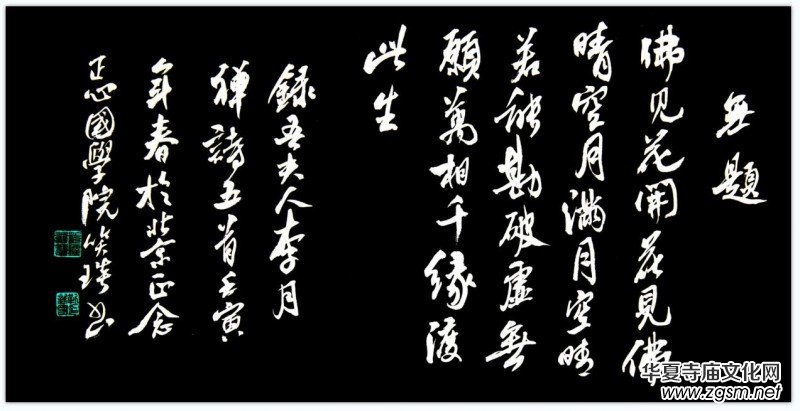 無題
佛見花開花見佛
晴空月滿月空晴
若能勘破虛無
願萬相千緣渡
此生
錄吾夫人李月
禪詩五首壬寅
年春於北京正念
正心國學院笑
书
华夏寺庙文化网
www.zgsm.net